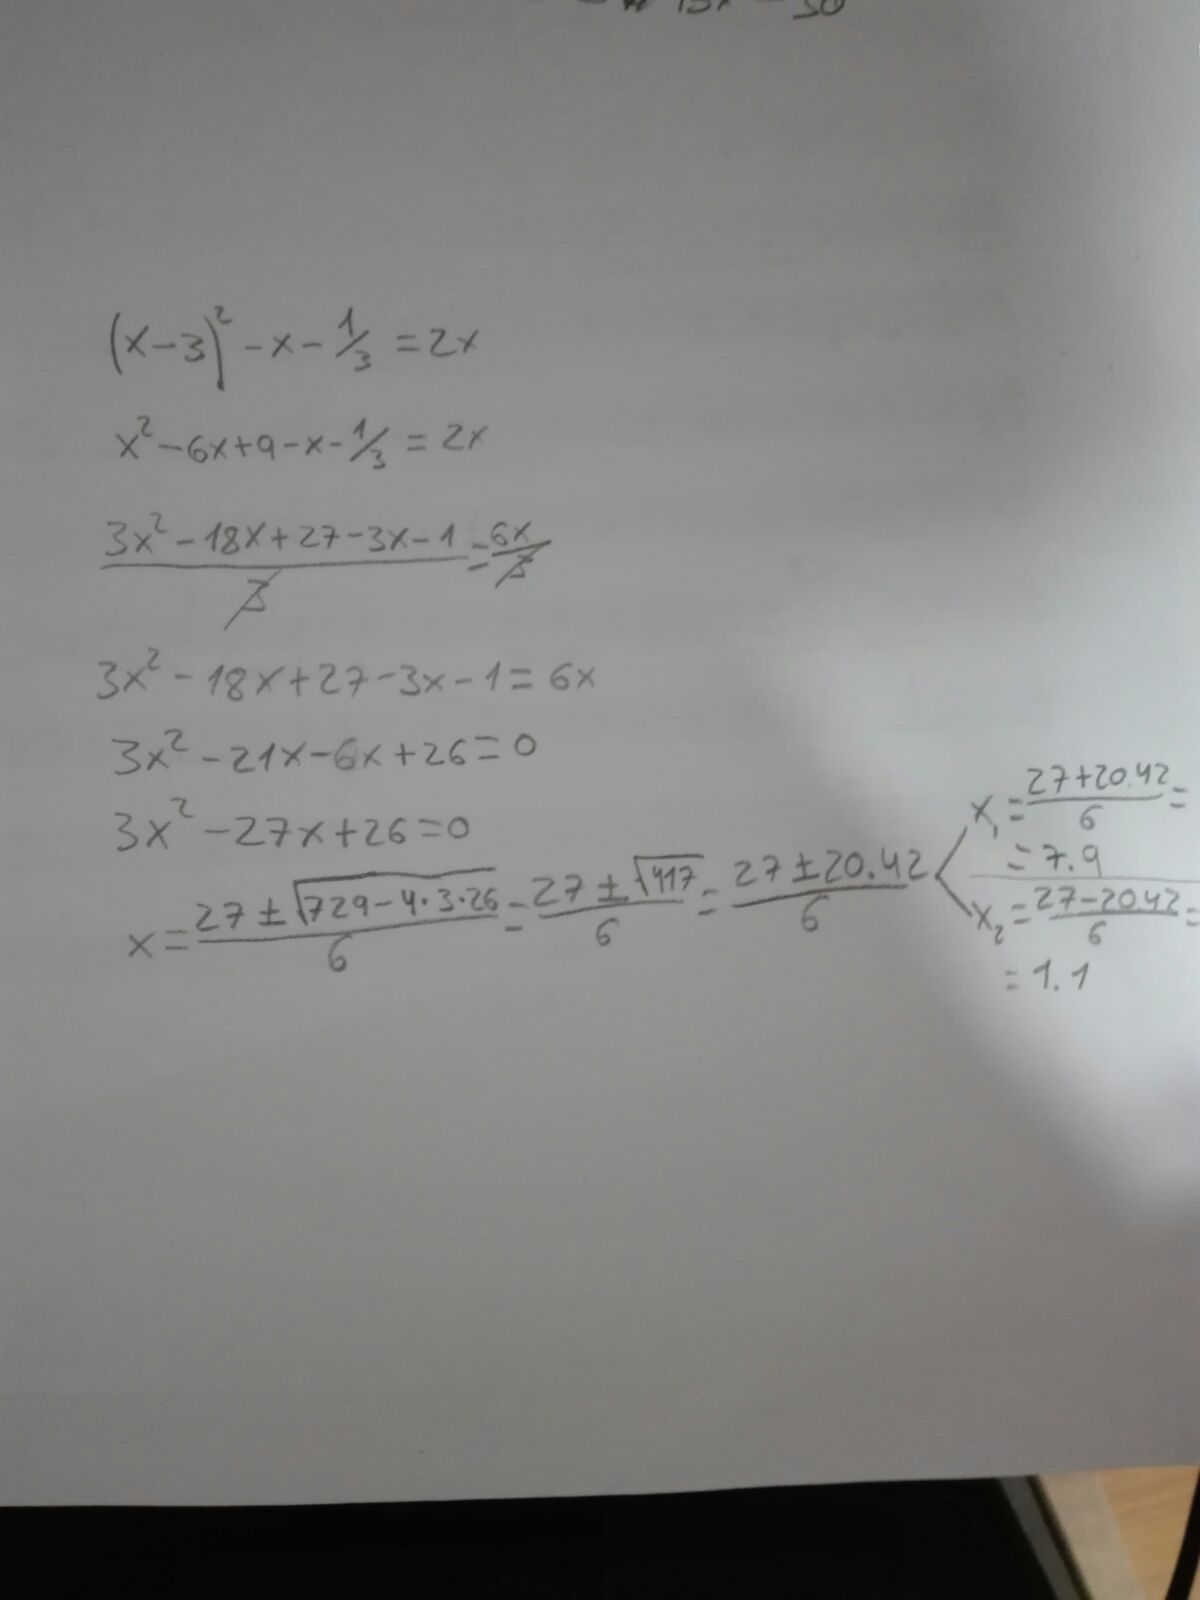 (x-3)² - x - 1/3 = 2x
x² - 6x + 9 - x - 1/3 = 2x
(3x² - 18x + 27 - 3x - 1)/3 = 6x/3
3x² - 18x + 27 - 3x - 1 = 6x
3x² - 21x - 6x + 26 = 0
3x² - 27x + 26 = 0
x = (27 ± √(729 - 4·3·26))/6 = (27 ± √417)/6 = (27 ± 20.42)/6
x₁ = (27 + 20.42)/6 =
= 7.9
x₂ = (27 - 20.42)/6 =
= 1.1